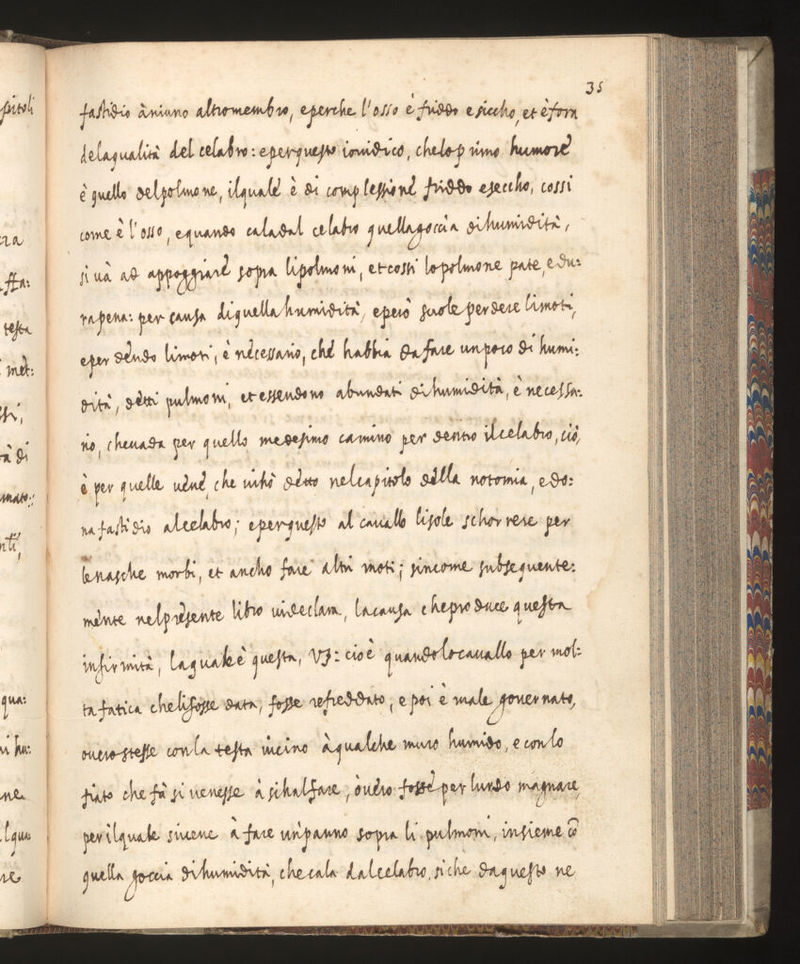 35
fastidio àniuno altromembro, eperche l'osso è friddo esiccho, et è forn
delaqualità del celabro: eperquesto iouidico, chelop rimo humore
è quello delpolmone, ilquale è di complessione friddo eseccho, cossi
come è l'osso, equando caladal celabro quellagoccia dihumidità,
si uà ad appoggiare sopra lipolmoni, etcossi lopolmone pate, e du=
rapena: per causa diquellahumidità, eperò suole perdere limoti,
eper dendo limoti, è necessario, che habbia dafare unpoco di humi=
dità, detti pulmoni, et essendono abundati dihumidità, è necessa=
rio, cheuada per quello medesimo camino per dentro ilcelabro, ciò
è per quelle uene, che uihò detto nelcapitolo della notomia, edo=
na fastidio alcelabro; eperquesto al cauallo lisole schorrere per
lenasche morbi, et ancho fare altri moti; sincome subsequente=
mente nelpresente libro uideclara, lacausa cheproduce questa
infirmità, laquale è questa, vz: cioè quandolocauallo per mol=
ta fatica chelifosse data, fosse refreddato, e poi è male gouernato,
ouero stesse conla testa uicino à qualche muro humido, econlo
fiato che fà si uenesse à schalfare, òuero fosse per lurdo magnare,
perilquale siuene à fare un'panno sopra li pulmoni, insieme cō
quella goccia dihumidità, checala dalcelabro, siche daquesto ne
pitoli
ffa:
testa
met:
à di
mato:
nti,
qua:
ne
lqua